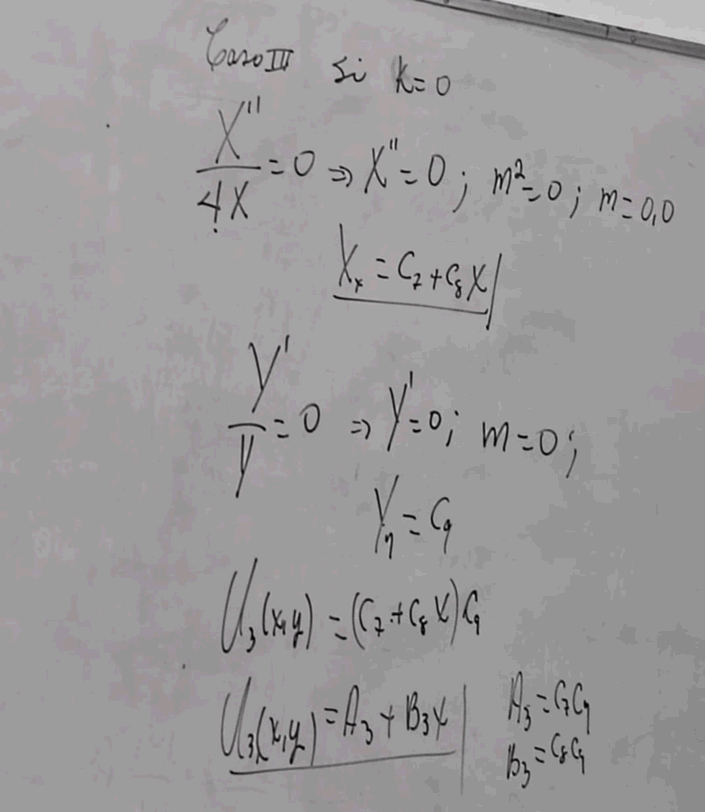 Caso III Si K=0
X''/4X = 0 ⇒ X'' = 0 ; m²=0 ; m=0,0
Xₓ = C₇ + C₈X
Y'/Y = 0 ⇒ Y'=0; m=0;
Yᵧ = C₉
U₃(x,y) = (C₇ + C₈X)C₉
U₃(x,y) = A₃ + B₃X
A₃ = C₇C₉
B₃ = C₈C₉